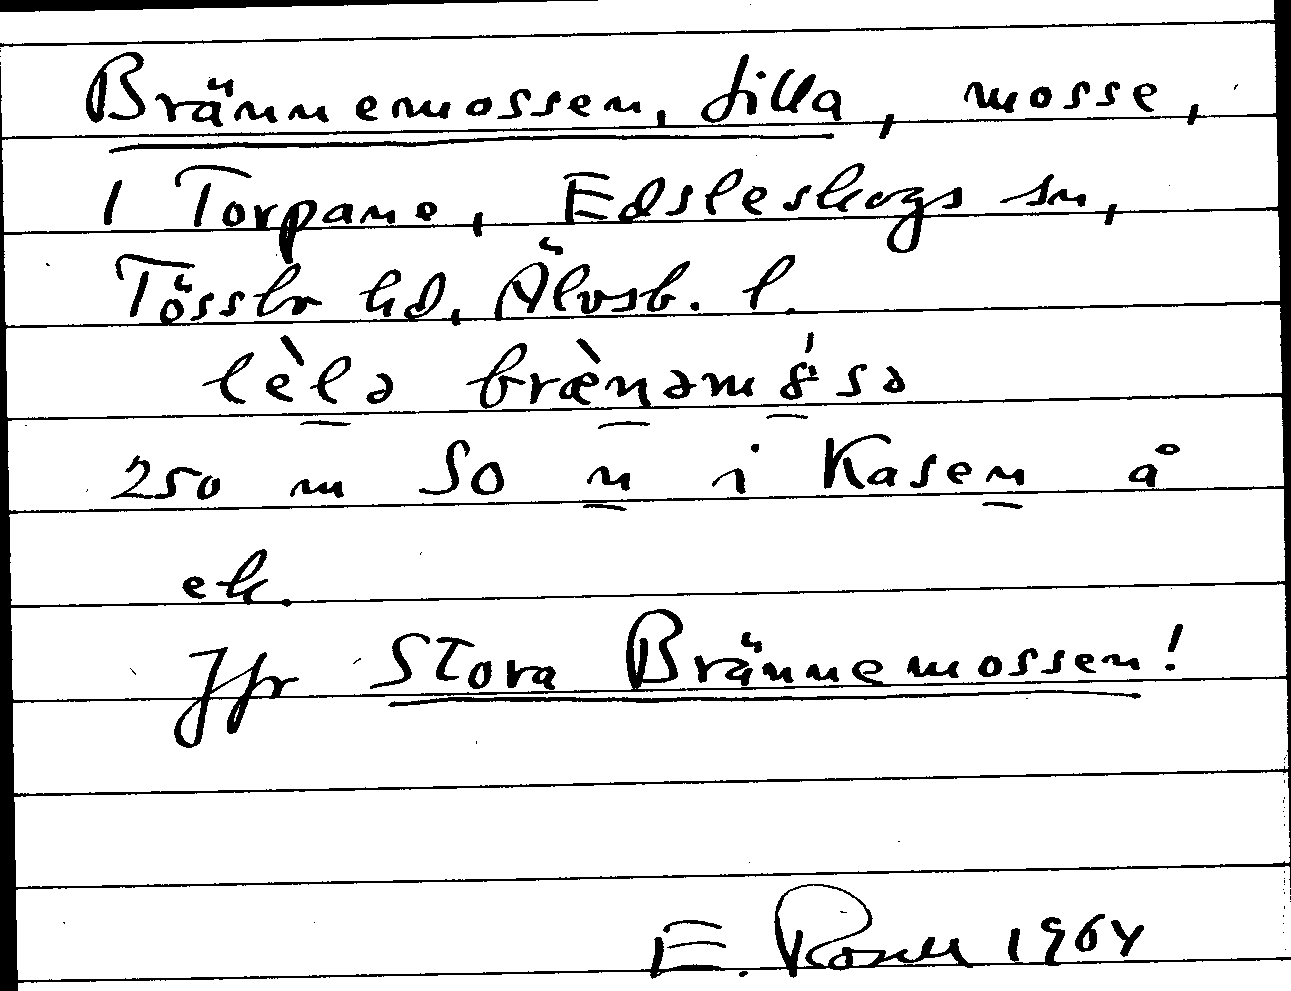 Brännemossen, Lilla, mosse,
1 Torpane, Edsleskogs sn,
Tössbo hd, Älvsb. l.
lèlə brænəm sə
250 m SO n i Kasen å
ek.
Jfr Stora Brännemossen!
E. 1964